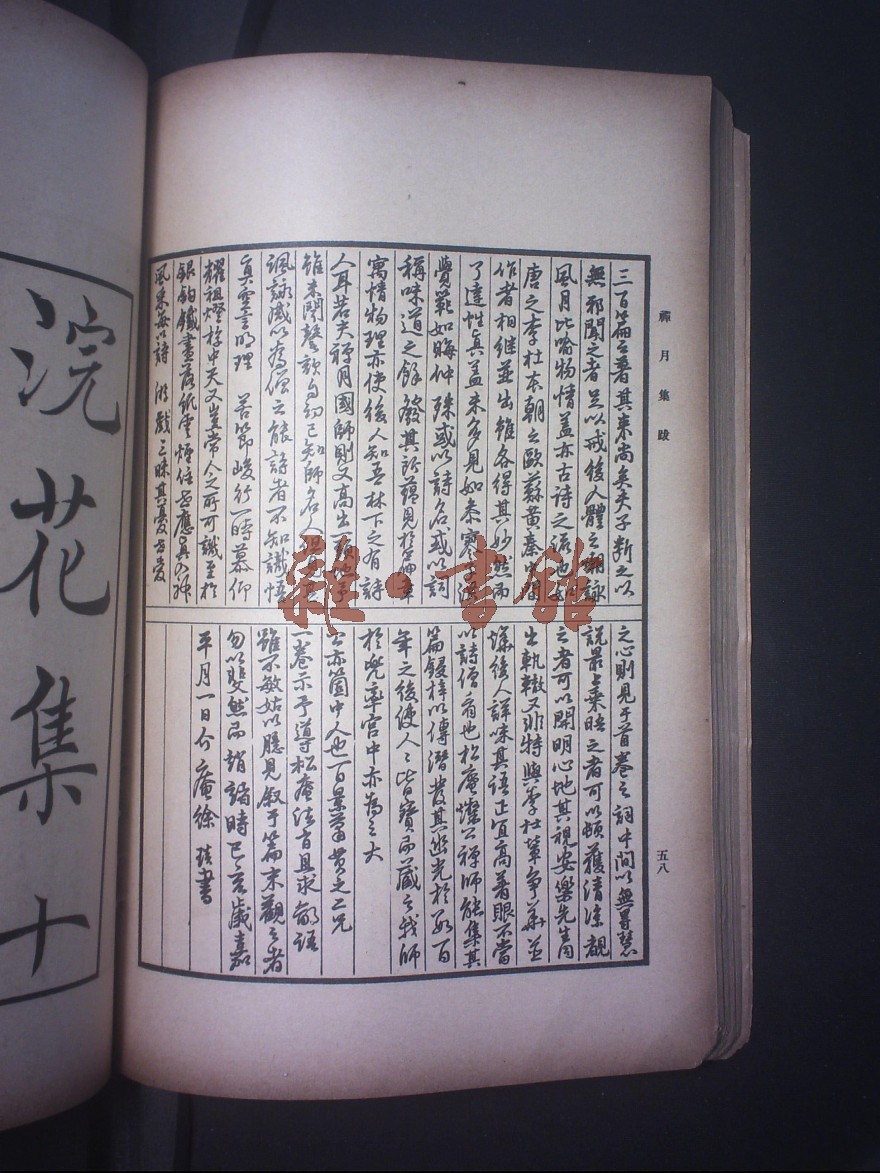 禪月集跋
五八
三百篇之著其來尚矣夫子斷之以
無邪聞之者足以戒後人體之嘲詠
風月比喻物情蓋亦古詩之流也如
唐之李杜本朝之歐蘇黃秦
作者相繼並出雖各得其妙然而
了達性真蓋未多見如參寥
覺範如晦仲殊或以詩名或以詞
稱味道之餘發其所蘊見於
寓情物理亦使後人知吾林下之有詩
人耳若夫禪月國師則又高出一頭地予
雖未聞謦欬自幼已知師名人
諷詠咸以為僧之能詩者不知識悟
真空言明理 苦節峻行一時慕仰
耀祖燈於中天又豈常人之所可識至於
銀鉤鐵畫落紙雲煙
風采每以詩 游戲三昧其憂
之心則見于首卷之詞中間以無礙慧
說最上乘昧之者可以頓獲清涼觀
之者可以開明心地其視安樂先生
出軌轍又非特與李杜輩爭華並
後人詳味其語正宜高著眼不當
以詩僧看也松庵燦公禪師能集其
篇鋟梓以傳潛發其幽光於數百
年之後使人人皆寶而藏之我師
於兜率宮中亦為之大
公亦箇中人也
一卷示予導松庵法旨且求敝語
雖不敏姑以臆見敘于篇末觀之者
勿以斐然而誚諸時巳亥歲嘉
平月一日介庵徐琰書
浣花集十
雜·書館